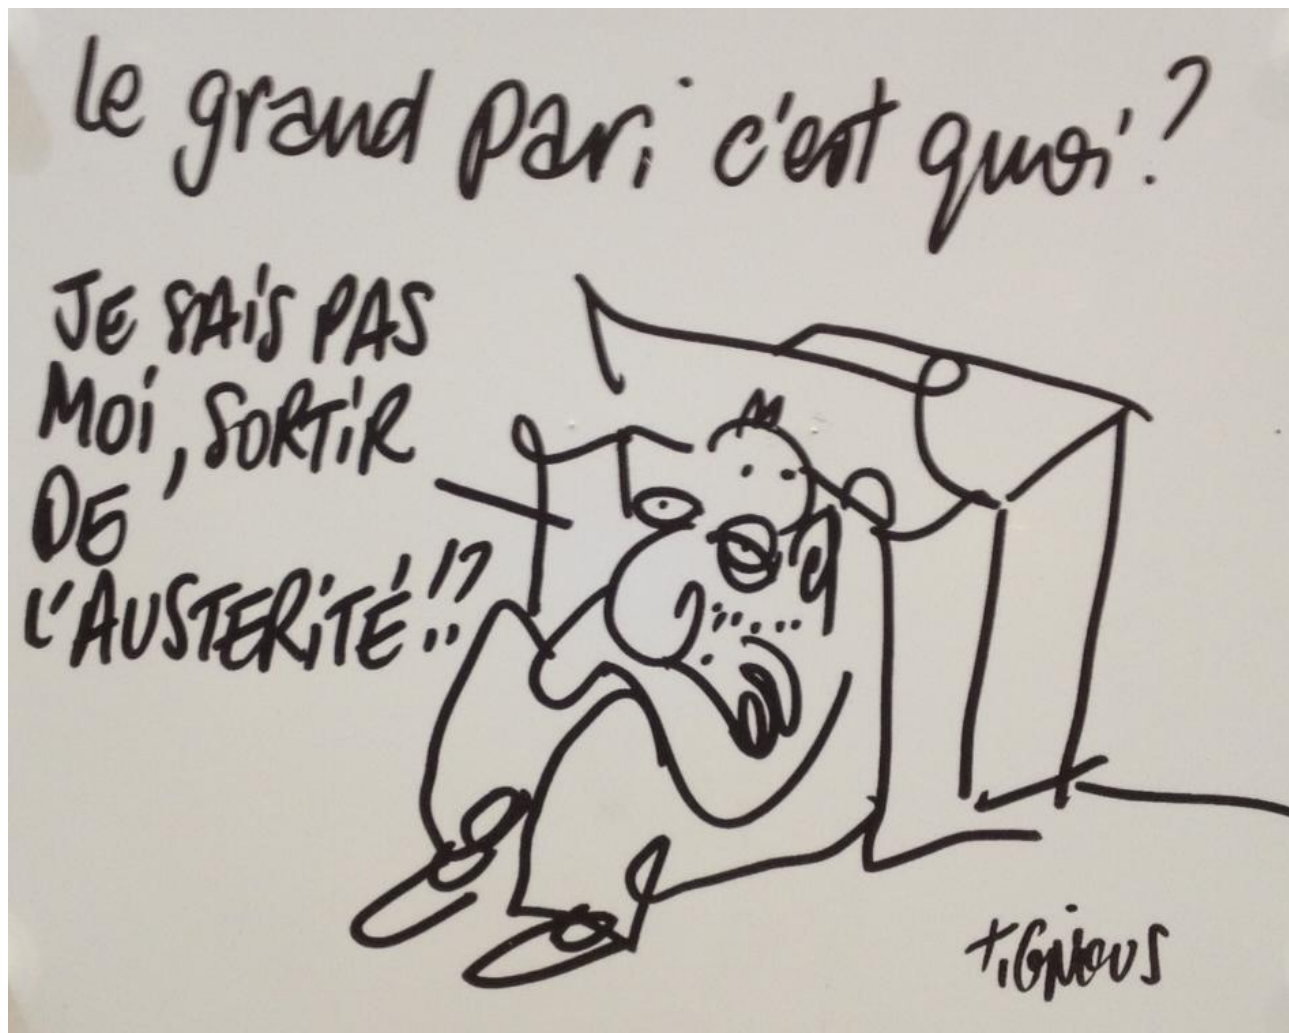 le grand pari c'est quoi ?
JE SAIS PAS
MOI, SORTIR
DE
L'AUSTERITÉ !!?
TIGNOUS